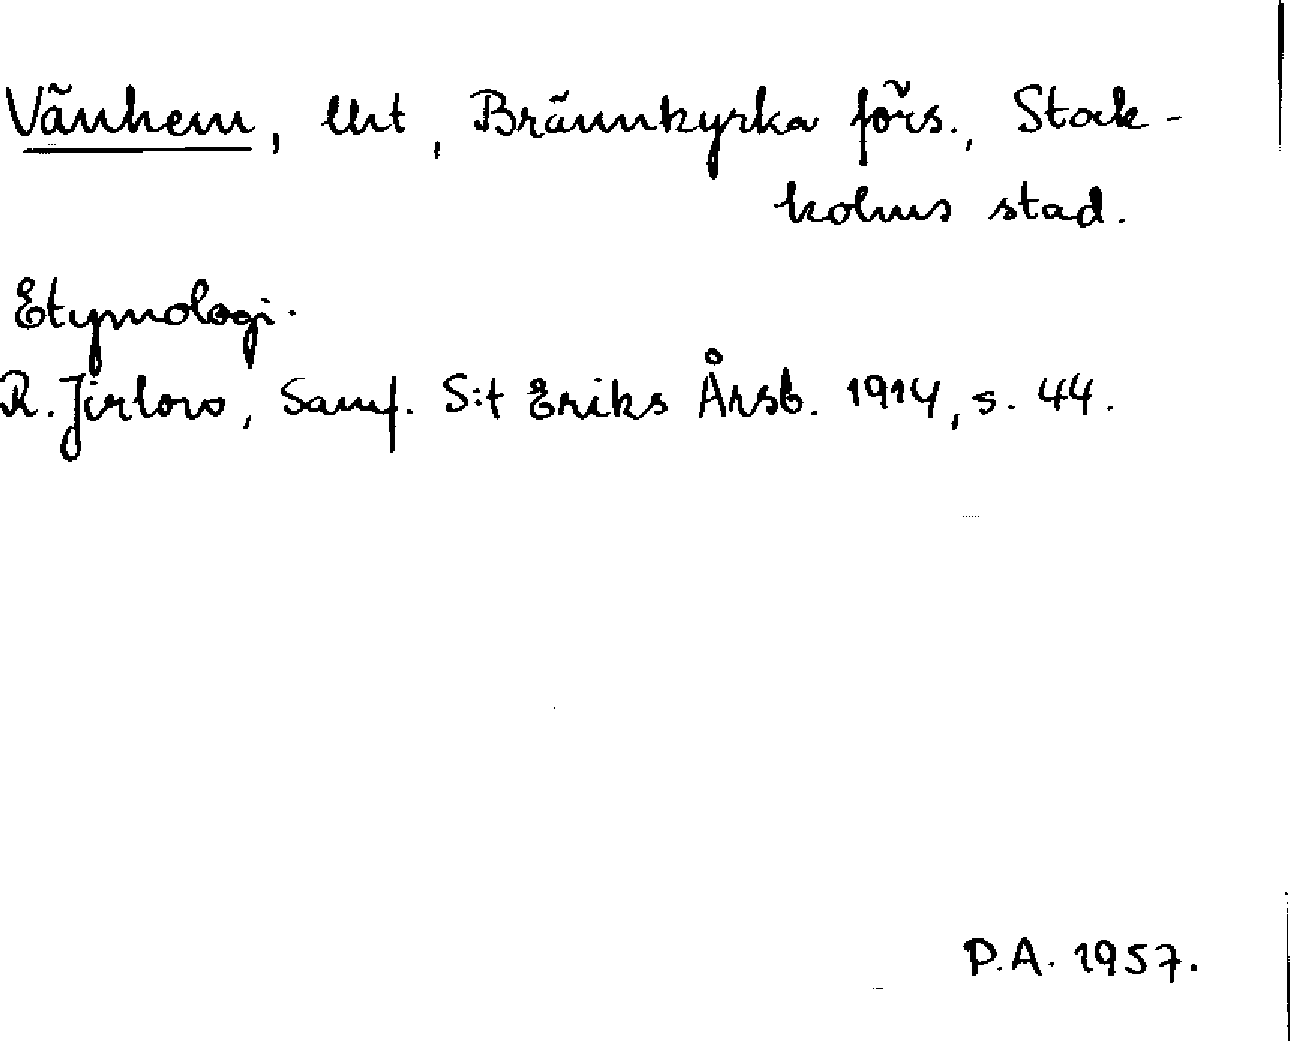 Vänhem, lht, Brännkyrka förs., Stock-
holms stad.
Etymologi.
R. Jirlow, Samf. S:t Eriks Årsb. 1914, s. 44.
P.A. 1957.